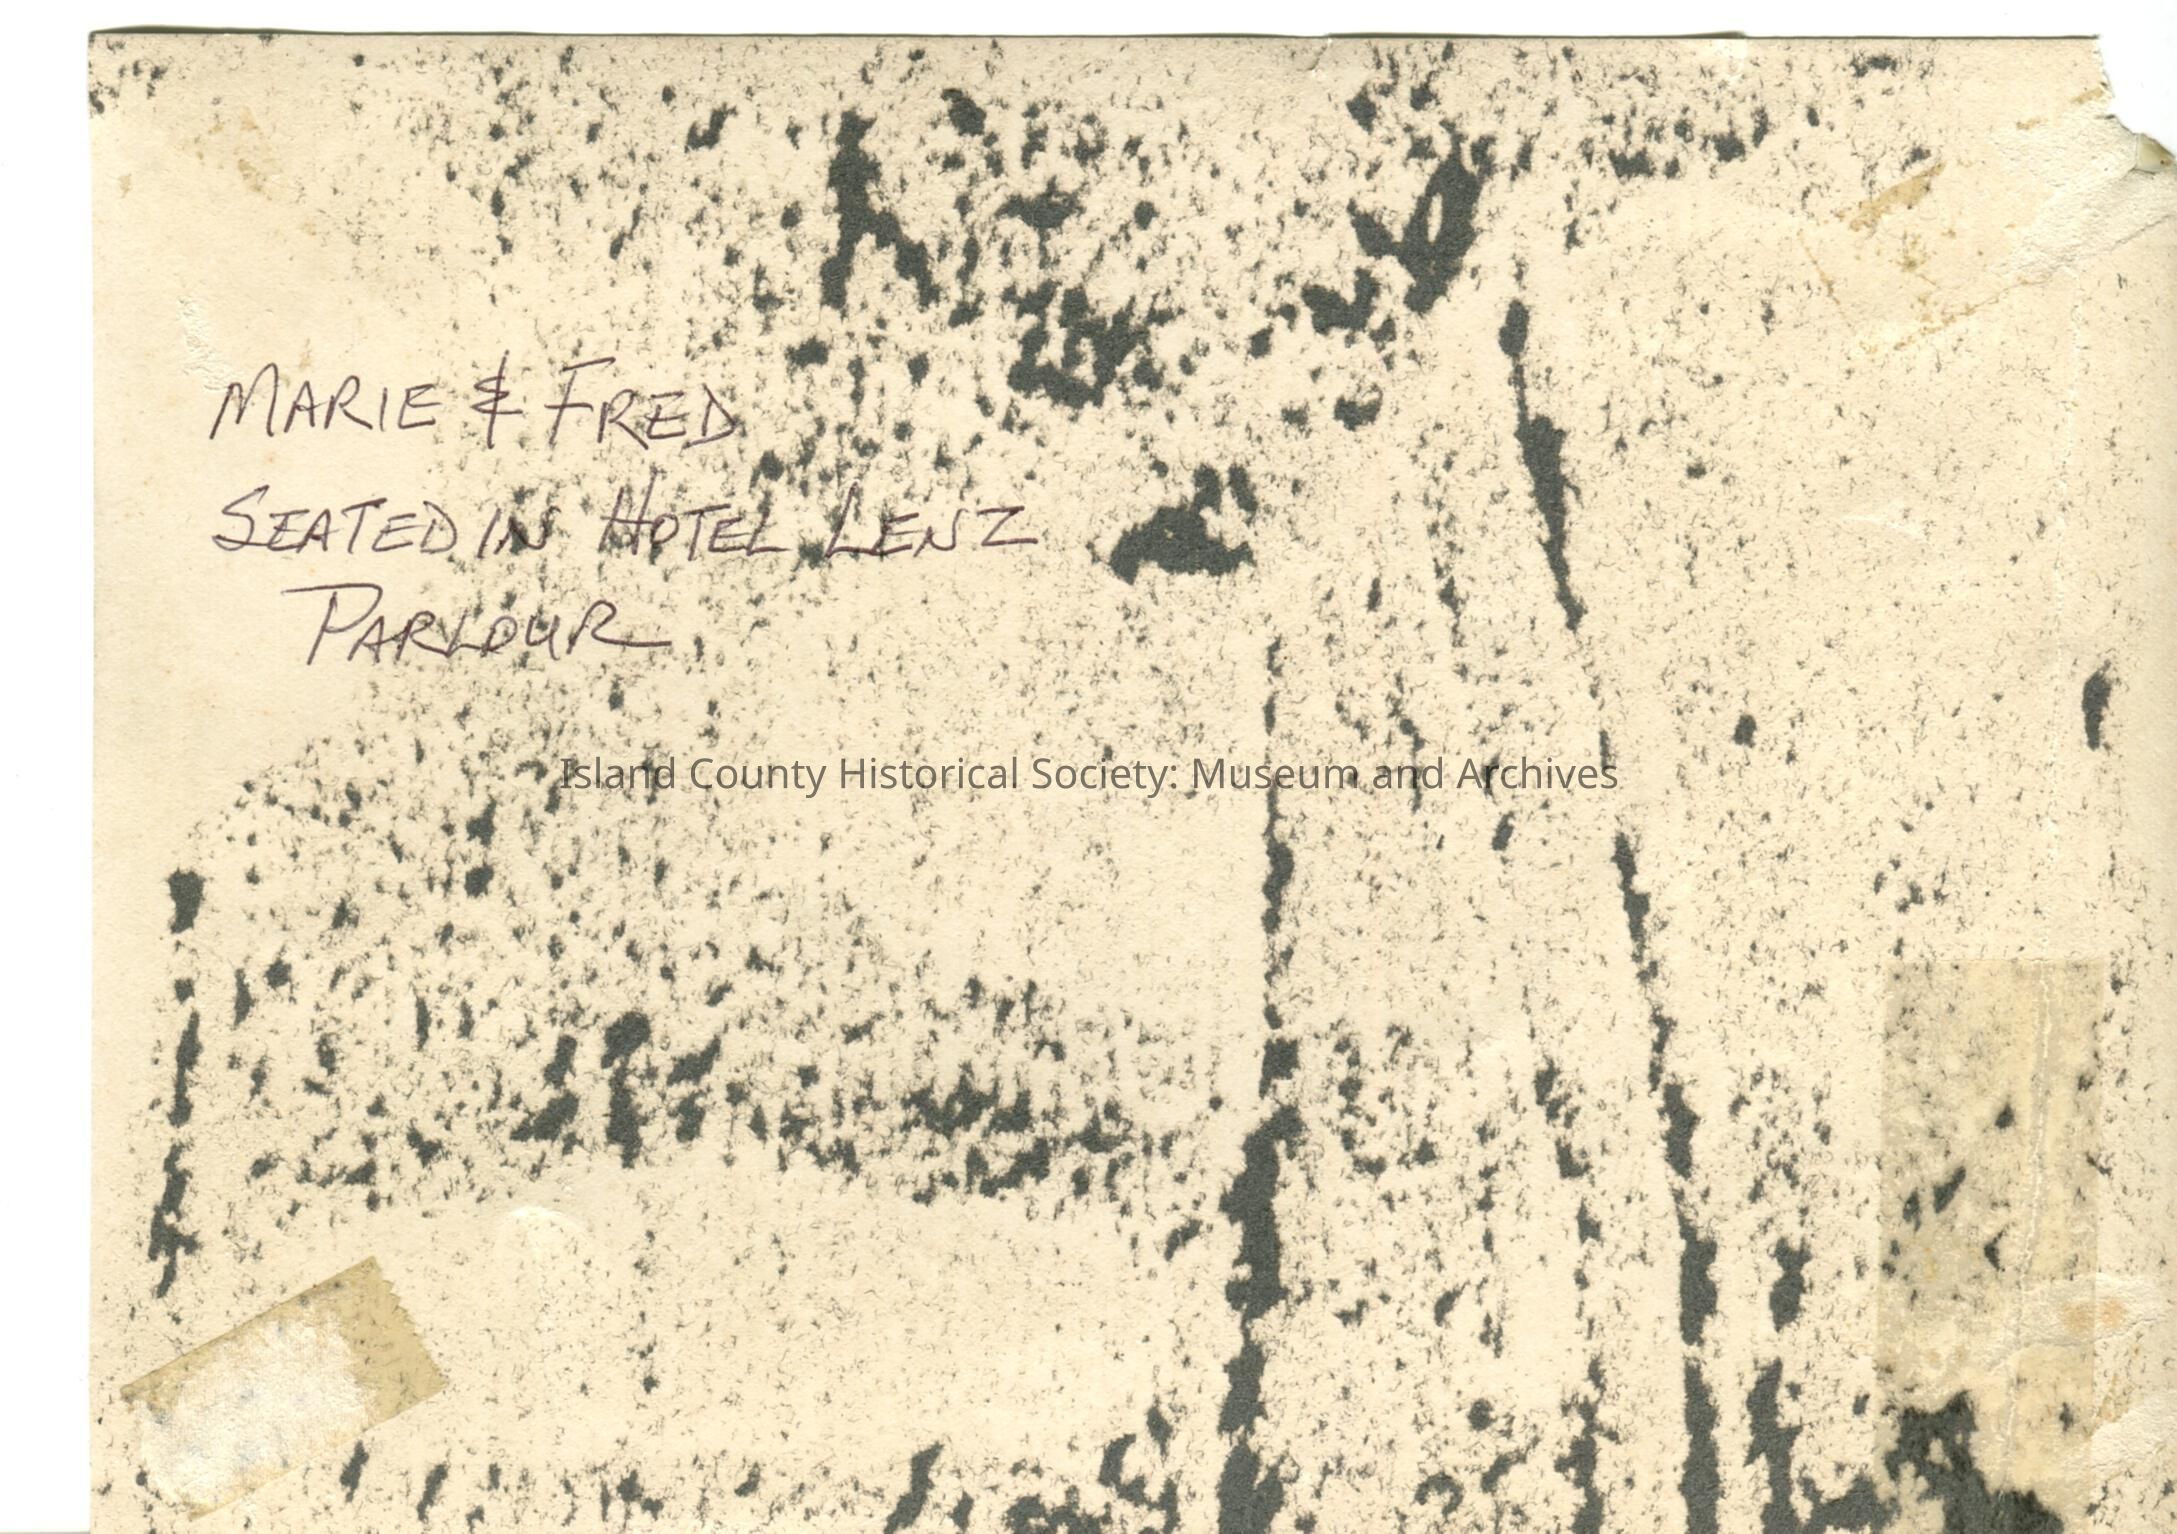 MARIE & FRED
SEATED IN HOTEL LENZ
PARLOUR
Island County Historical Society: Museum and Archives